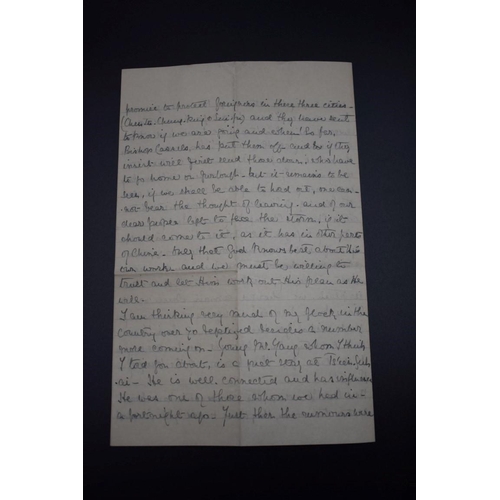 promise to protect foreigners in these three cities -
and they have sent
to know if we are going and when! So far,
Bishop Cassels has put them off and so if they
insist will first send those down, who have
to go home or furlough - but it remains to be
seen, if we shall be able to hold out, one can
- not bear the thought of leaving - and of our
dear people left to face the storm, if it
should come to it, as it has in other parts
of China. Only that God knows best about His
own work and we must be willing to
trust and let Him work out His plan as He
will.
I am thinking very much of my flock in the
country over 70 baptised besides a number
more coming on - young Mr. Yang whom I think
I told you about, is a first at
- ai - He is well connected and has influence
He was one of those whom we had in -
a fortnight ago - Just then the rumours were